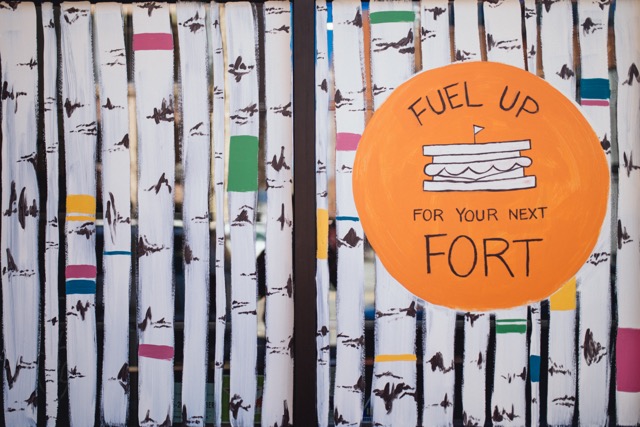 FUEL UP
FOR YOUR NEXT
FORT